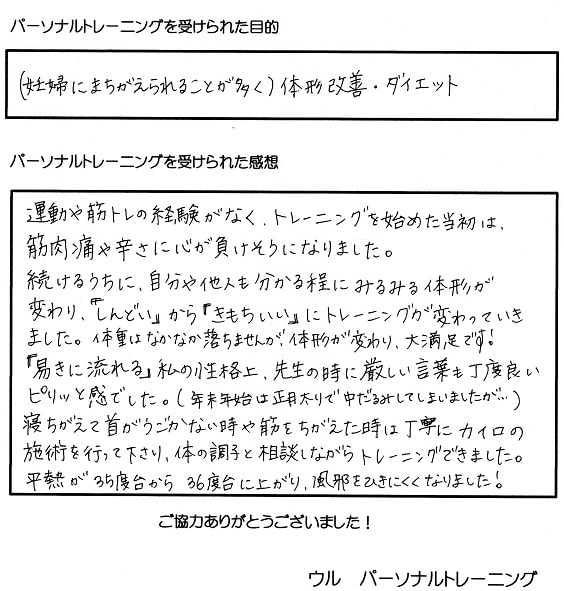 パーソナルトレーニングを受けられた目的
(妊婦にまちがえられることが多く) 体形改善・ダイエット
パーソナルトレーニングを受けられた感想
運動や筋トレの経験がなく、トレーニングを始めた当初は、
筋肉痛や辛さに心が負けそうになりました。
続けるうちに、自分や他人も分かる程にみるみる体形が
変わり、『しんどい』から『きもちいい』にトレーニングが変わっていき
ました。体重はなかなか落ちませんが、体形が変わり、大満足です!
『易きに流れる』私の性格上、先生の時に厳しい言葉も丁度良い
ピリッと感でした。(年末年始は正月太りで中だるみしてしまいましたが…)
寝ちがえて首がうごかない時や筋をちがえた時は丁寧にカイロの
施術を行って下さり、体の調子と相談しながらトレーニングできました。
平熱が35度台から 36度台に上がり、風邪をひきにくくなりました!
ご協力ありがとうございました!
ウル パーソナルトレーニング